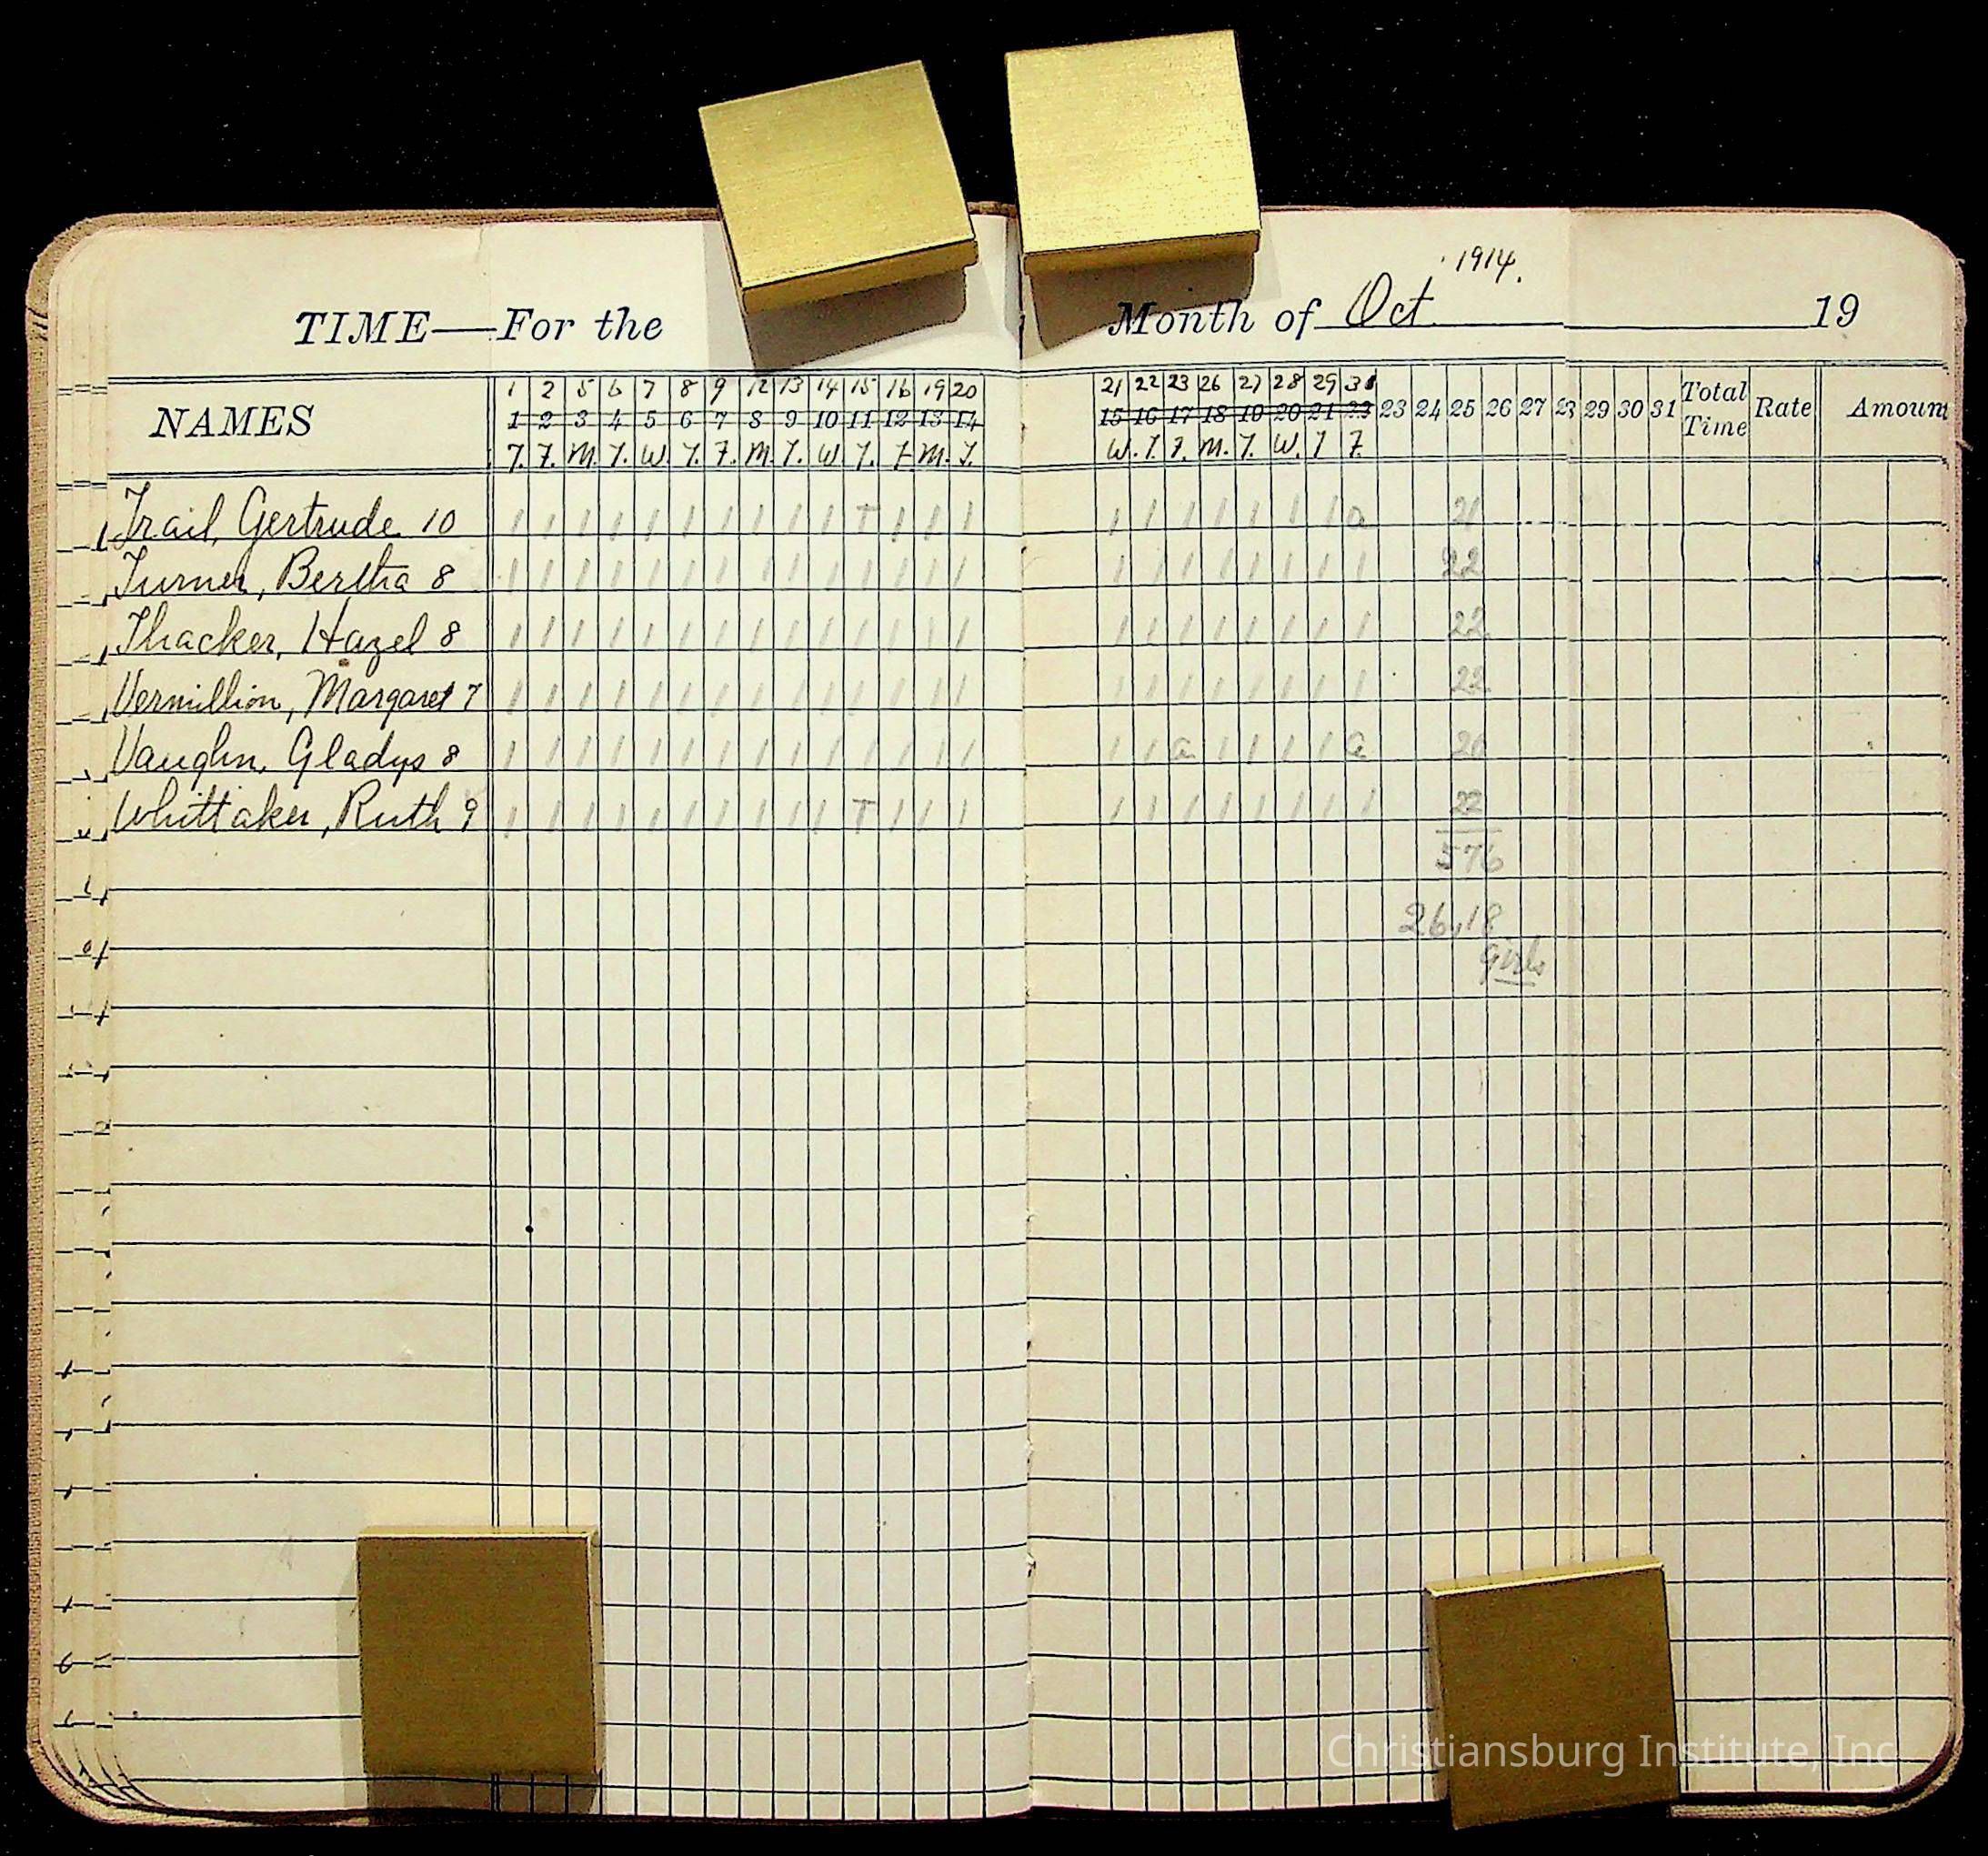 1914.
TIME—For the Month of Oct 19
1 2 5 6 7 8 9 12 13 14 15 16 19 20 21 22 23 26 27 28 29 30
NAMES 1 2 3 4 5 6 7 8 9 10 11 12 13 14 15 16 17 18 19 20 21 22 23 24 25 26 27 28 29 30 31 Total Time Rate Amount
T. F. M. T. W. T. F. M. T. W T. F. M. T. W. T. F. M. T. W. T F.
Trail, Gertrude 10 / / / / / / / / / / T / / / / / / / / / / a 21
Turner, Bertha 8 / / / / / / / / / / / / / / / / / / / / / / 22
Thacker, Hazel 8 / / / / / / / / / / / / / / / / / / / / / / 22
Vermillion, Margaret 7 / / / / / / / / / / / / / / / / / / / / / / 22
Vaughn, Gladys 8 / / / / / / / / / / / / / / / / a / / / / a 20
Whittaker, Ruth 9 / / / / / / / / / / T / / / / / / / / / / / 22
576
26.18
girls
Christiansburg Institute, Inc